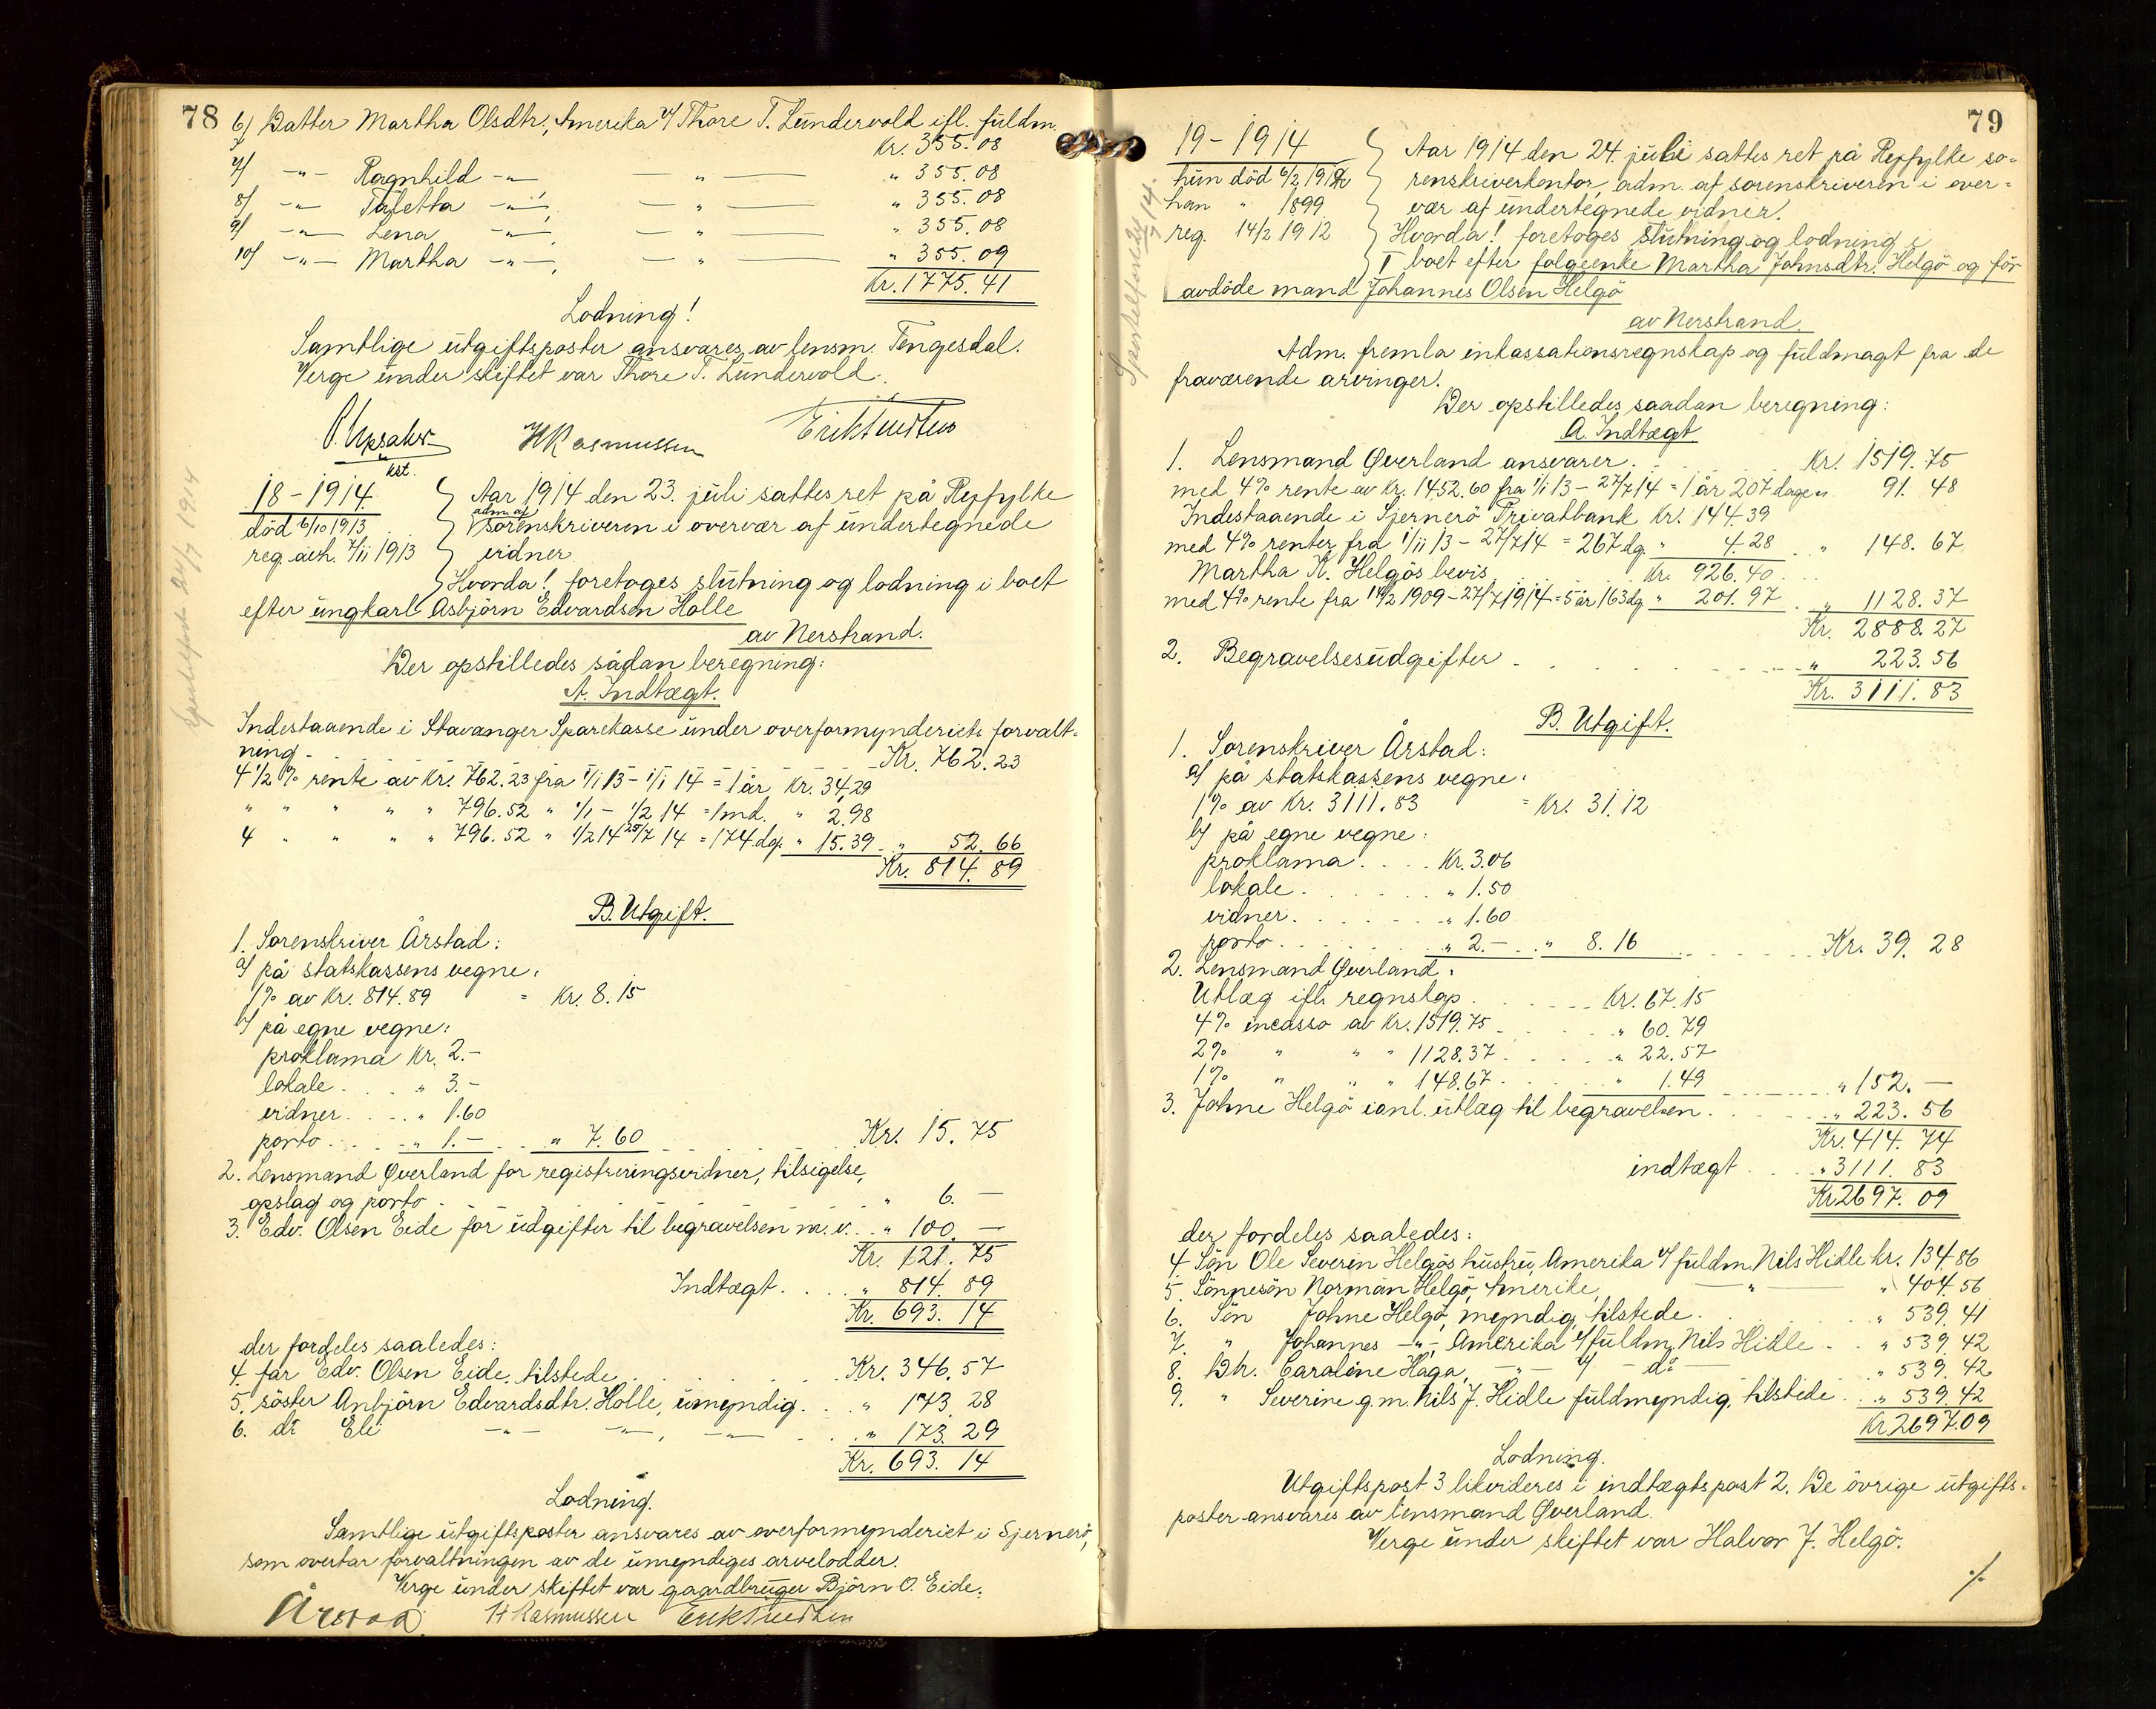 78
6/ Datter Martha Olsdtr, Amerika v/ Thore T. Lundervold ifl. fuldm.
Kr. 355.08
7/ -"- Ragnhild -"- — " — " 355.08
8/ -"- Taletta -"-, — " — " 355.08
9/ -"- Lena -"-, — " — " 355.08
10/ -"- Martha -"-, — " — " 355.09
Kr. 1775.41
Lodning!
Samtlige utgiftsposter ansvares av lensm. Tengesdal.
Verge under skiftet var Thore T. Lundervold.
kst.
H Rasmussen
18-1914.
død 6/10 1913
reg. avh. 7/11 1913
Aar 1914 den 23. juli sattes ret på Ryfylke
adm. af
sorenskriveren i overvær af undertegnede
vidner
Hvorda! foretoges slutning og lodning i boet
efter ungkarl Asbjörn Edvardsen Holle
av Nerstrand.
Der opstilledes sådan beregning:
A. Indtægt.
Indestaaende i Stavanger Sparekasse under overformynderiets forvalt-
ning - - - - Kr. 762.23
4 1/2 % rente av Kr. 762.23 fra 1/1 13 - 1/1 14 = 1 år Kr. 34,29
" " " " " 796.52 " 1/1 - 1/2 14 = 1 md. " 2.98
4 " " " " 796.52 " 1/2 14 25/7 14 = 174 dg. " 15.39 " 52.66
Kr. 814.89
B. Utgift.
1. Sorenskriver Årstad:
a/ på statskassens vegne:
1% av Kr. 814.89 = Kr. 8.15
b/ på egne vegne:
proklama Kr. 2.-
lokale . . . " 3.-
vidner . . . " 1.60
porto . . . " 1.- . . " 7.60 . . . Kr. 15.75
2. Lensmand Øverland for registreringsvidner, tilsigelse,
opslag og porto . . . " 6.—
3. Edv. Olsen Eide for udgifter til begravelsen m. v. . . " 100.—
Kr. 121.75
Indtægt . . . . " 814.89
Kr. 693.14
der fordeles saaledes:
4. far Edv. Olsen Eide, tilstede . . . . Kr. 346.57
5. söster Anbjörn Edvardsdtr. Holle, umyndig . . " 173.28
6. do Eli -"- -"-, -"- . . " 173.29
Kr. 693.14
Lodning.
Samtlige utgiftsposter ansvares av overformynderiet i Sjernerö,
som overtar forvaltningen av de umyndiges arvelodder.
Verge under skiftet var gaardbruger Björn O. Eide.
Årstad. H Rasmussen
79
19-1914
hun död 6/2 1912
han " 1899
reg. 14/2 1912
Aar 1914 den 24. juli sattes ret på Ryfylke so-
renskriverkontor, adm. af sorenskriveren i over-
vær af undertegnede vidner.
Hvorda! foretoges slutning og lodning i
boet efter følgeenke Martha Johnsdtr. Helgö og för
avdöde mand Johannes Olsen Helgö
av Nerstrand.
Adm. fremla inkassationsregnskap og fuldmagt fra de
fraværende arvinger.
Der opstilledes saadan beregning:
A. Indtægt
1. Lensmand Øverland ansvarer . . . Kr. 1519.75
med 4% rente av Kr. 1452.60 fra 1/1 13 - 27/7 14 = 1 år 207 dage " 91.48
Indestaaende i Sjernerö Privatbank Kr. 144.39
med 4% renter fra 1/11 13 - 27/7 14 = 267 dg. " 4.28 . . " 148.67
Martha K. Helgös bevis Kr. 926.40 . . .
med 4% rente fra 14/2 1909 - 27/7 1914 = 5 år 163 dg " 201.97 . " 1128.37
Kr. 2888.27
2. Begravelsesudgifter . . . . " 223.56
Kr. 3111.83
B. Utgift.
1. Sorenskriver Årstad:
a/ på statskassens vegne:
1% av Kr. 3111.83 = Kr. 31.12
b/ på egne vegne:
proklama . . . . Kr. 3.06
lokale . . . . " 1.50
vidner . . . . " 1.60
porto . . . . " 2.- . . " 8.16 . . . Kr. 39.28
2. Lensmand Øverland:
Utlæg ifl. regnskap . . . . Kr. 67.15
4% incasso av Kr. 1519.75 . . . " 60.79
2% " " " 1128.37 . . . " 22.57
1% " " " 148.67 . . . " 1.49 . . . " 152.—
3. Johne Helgö ianl. utlæg til begravelsen . . . " 223.56
Kr. 414.74
indtægt . . . " 3111.83
Kr 2697.09
der fordeles saaledes:
4. Sön Ole Severin Helgös hustru, Amerika v/ fuldm. Nils Hidle kr. 134.86
5. Sönnesön Norman Helgö, Amerika, — " — " 404.56
6. Sön Johne Helgö, myndig, tilstede . . . " 539.41
7. " Johannes -"-, Amerika v/ fuldm. Nils Hidle . . " 539.42
8. Dtr. Caroline Haga, -"- v/ - do - " 539.42
9. " Severine g. m. Nils J. Hidle fuldmyndig, tilstede . . " 539.42
Kr. 2697.09
Lodning.
Utgiftspost 3 likvideres i indtægtspost 2. De övrige utgifts-
poster ansvares av lensmand Øverland.
Verge under skiftet var Halvor J. Helgö.
./.